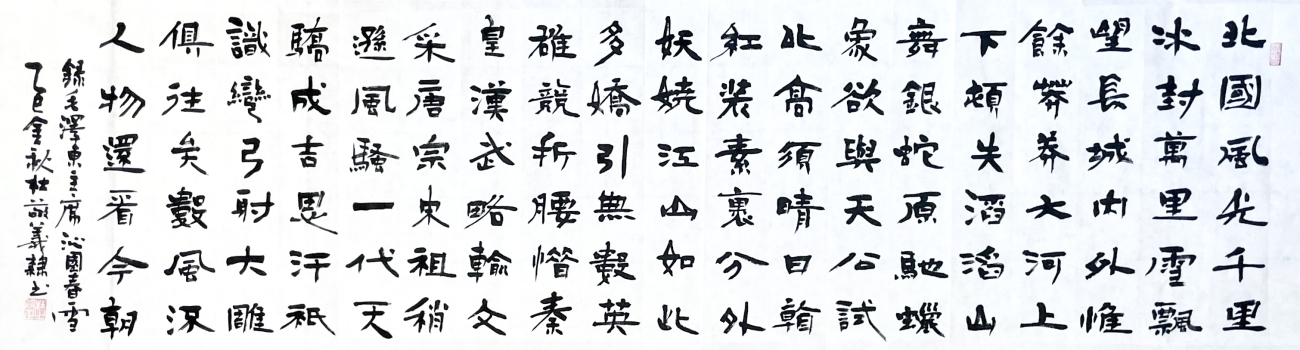 北國風光千里
冰封萬里雪飄
望長城內外惟
餘莽莽大河上
下頓失滔滔山
舞銀蛇原馳蠟
象欲與天公試
比高須晴日看
紅裝素裹分外
妖嬈江山如此
多嬌引無數英
雄競折腰惜秦
皇漢武略輸文
采唐宗宋祖稍
遜風騷一代天
驕成吉思汗祇
識彎弓射大雕
俱往矣數風流
人物還看今朝
錄毛澤東主席沁園春雪
乙巳金秋杜敬義隸书